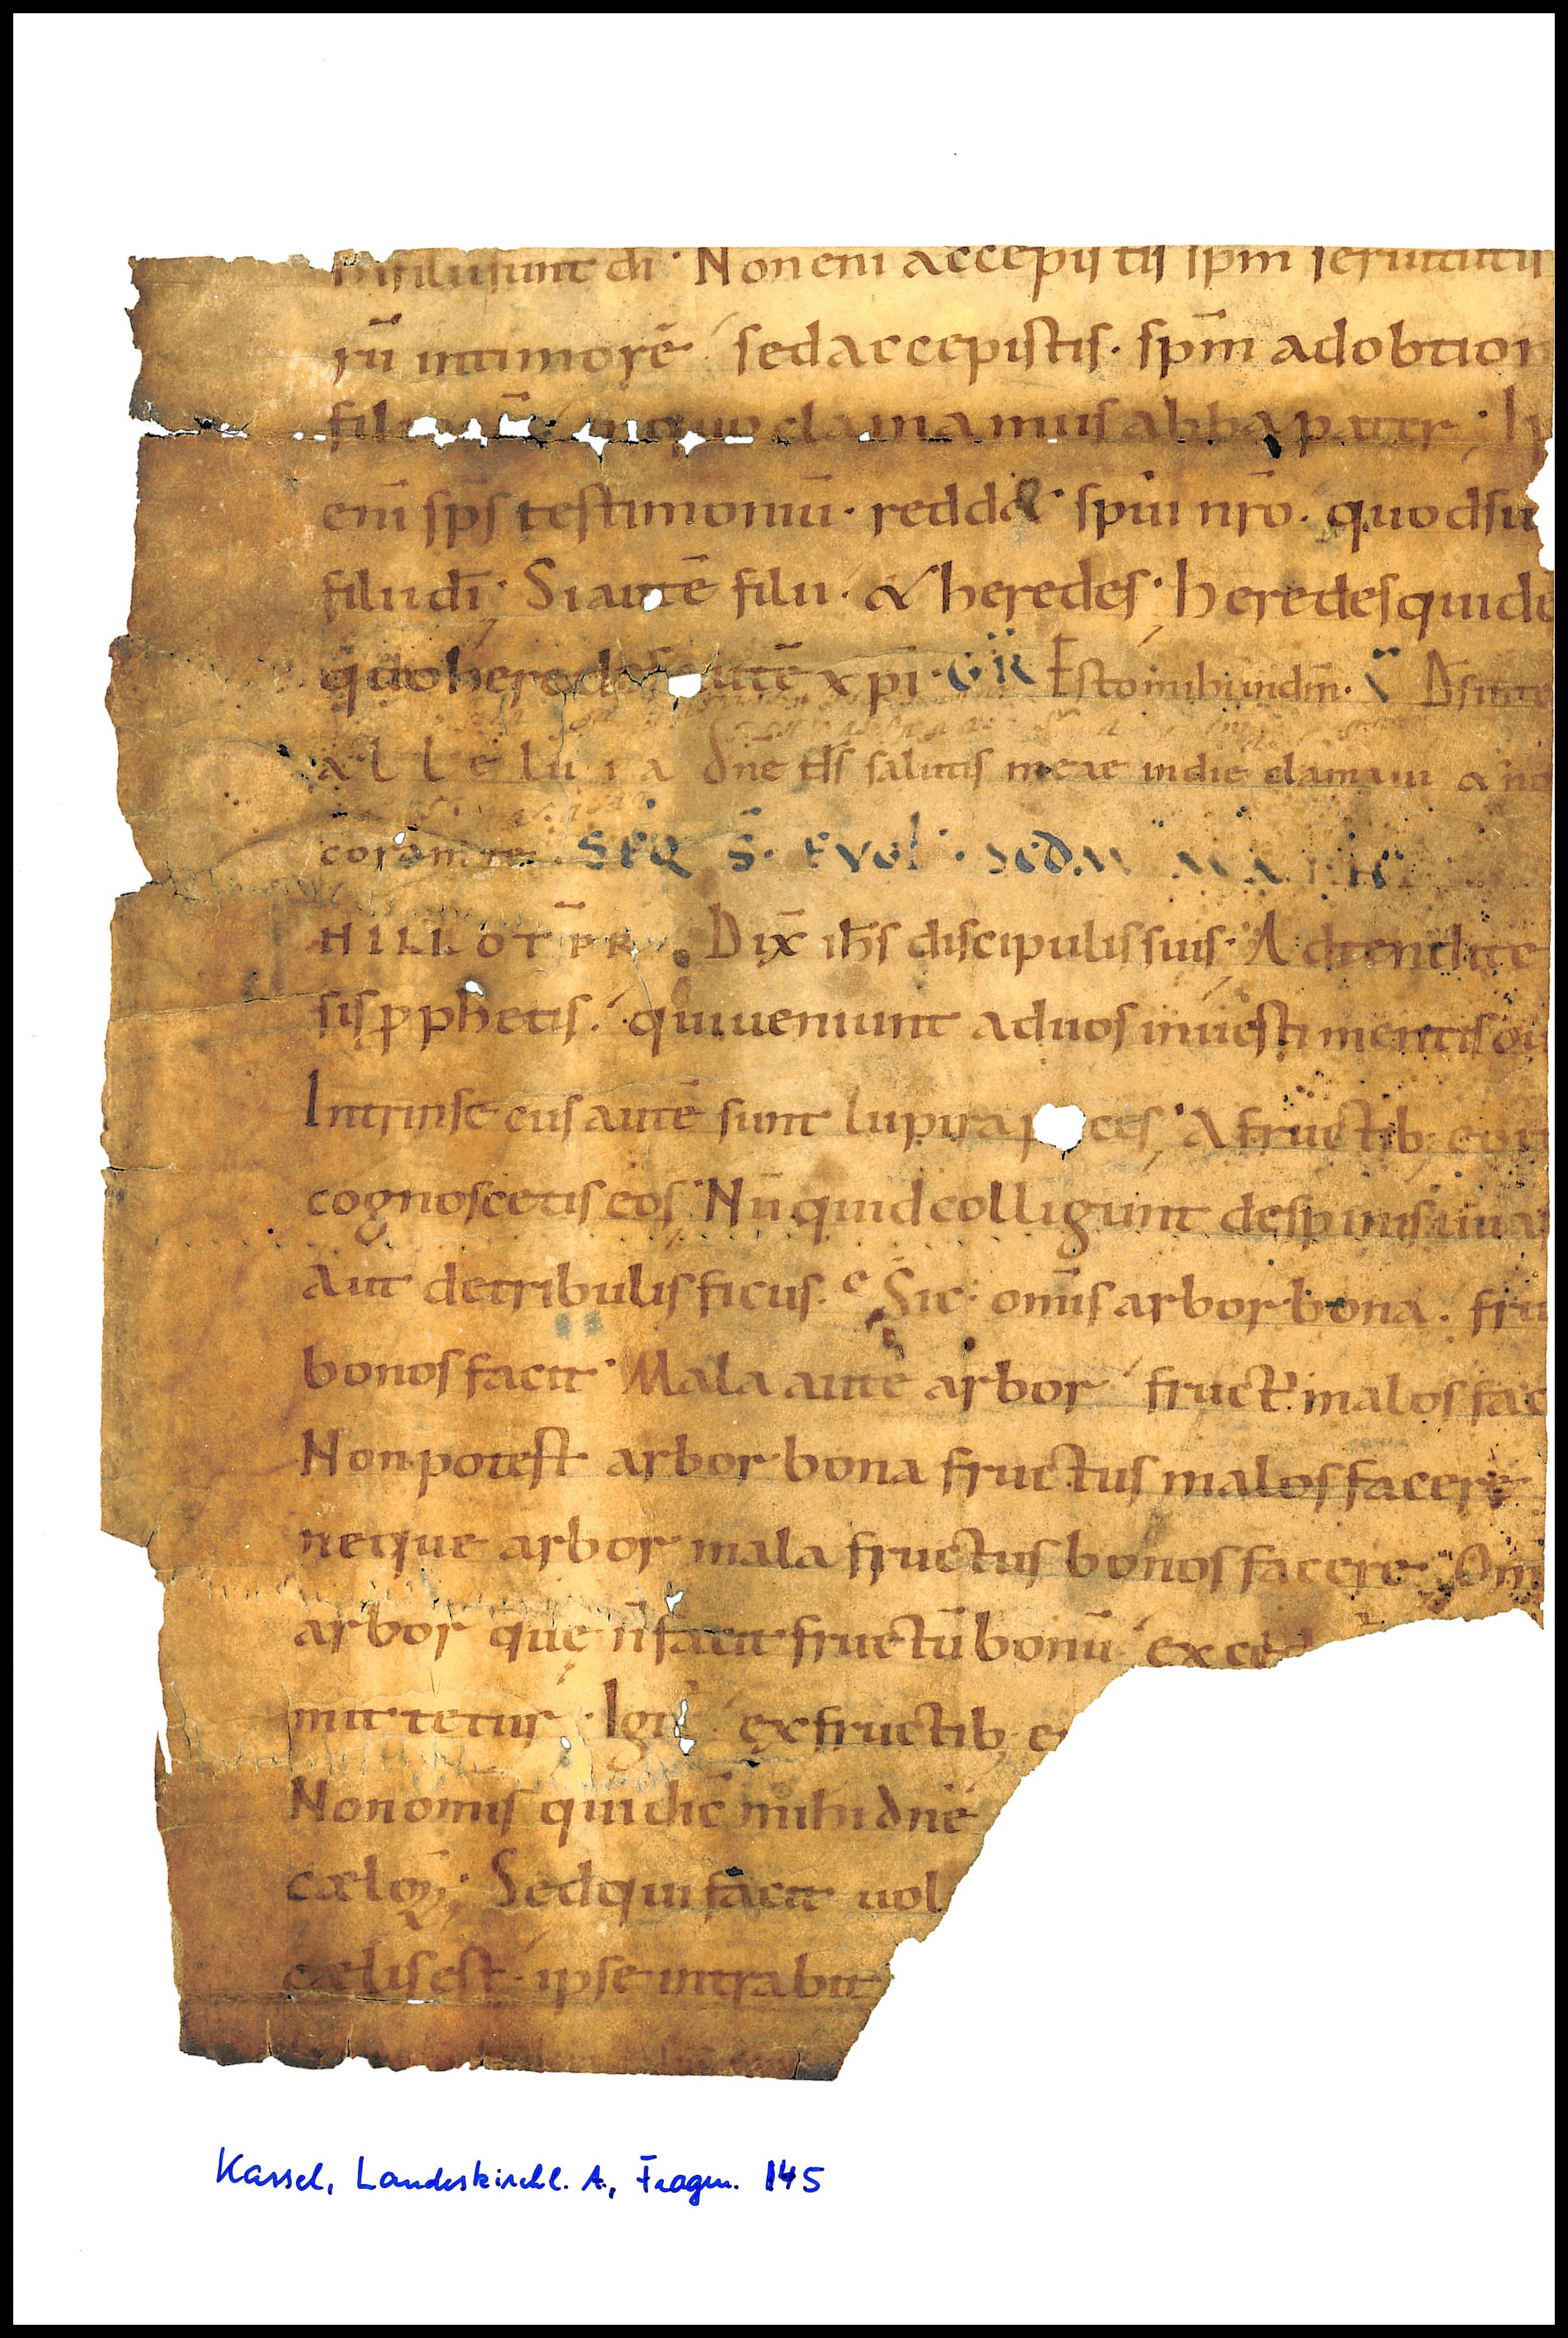 filii sunt dī · Non enī accepistis sp̄m seruitutis
rū in timorē sed accepistis · sp̄m adobtion
quo clamamus abba pater · Ip
enī sp̄s testimoniū · redd& · sp̄ui nr̄o · quod su
filii dī · Si autē filii · & heredes · heredes quidē
autē xp̄i · GR̄ Esto mihi in dm̄ · V̄ D̄s in te
alleluia Dn̄e d̄s salutis meae in die clamaui & no
coram te · SEQ S̄ · EVGL · SCD̄M MATH
IN ILLO T̄PR · Dix̄ ih̄s discipulis suis · Adtendite
sis ꝓphetis · qui ueniunt ad uos in uestimentis oui
Intrinsecus autē sunt lupi rap ces · A fructib; eor
cognoscetis eos · Nū quid colligunt de spinis uua
aut de tribulis ficus · Sic omīs arbor bona · fru
bonos facit · Mala autē arbor fruct: malos fac
Non potest arbor bona fructus malos facere
neque arbor mala fructus bonos facere · Om
arbor quę n̄ facit fructū bonū exced
mittetur · Igit ex fructib; e
Non omīs qui dic̄ mihi dn̄e
cæloꝝ · Sed qui facit uol
cælis est · ipse intrabit
Kassel, Landeskirchl. A., Fragm. 145